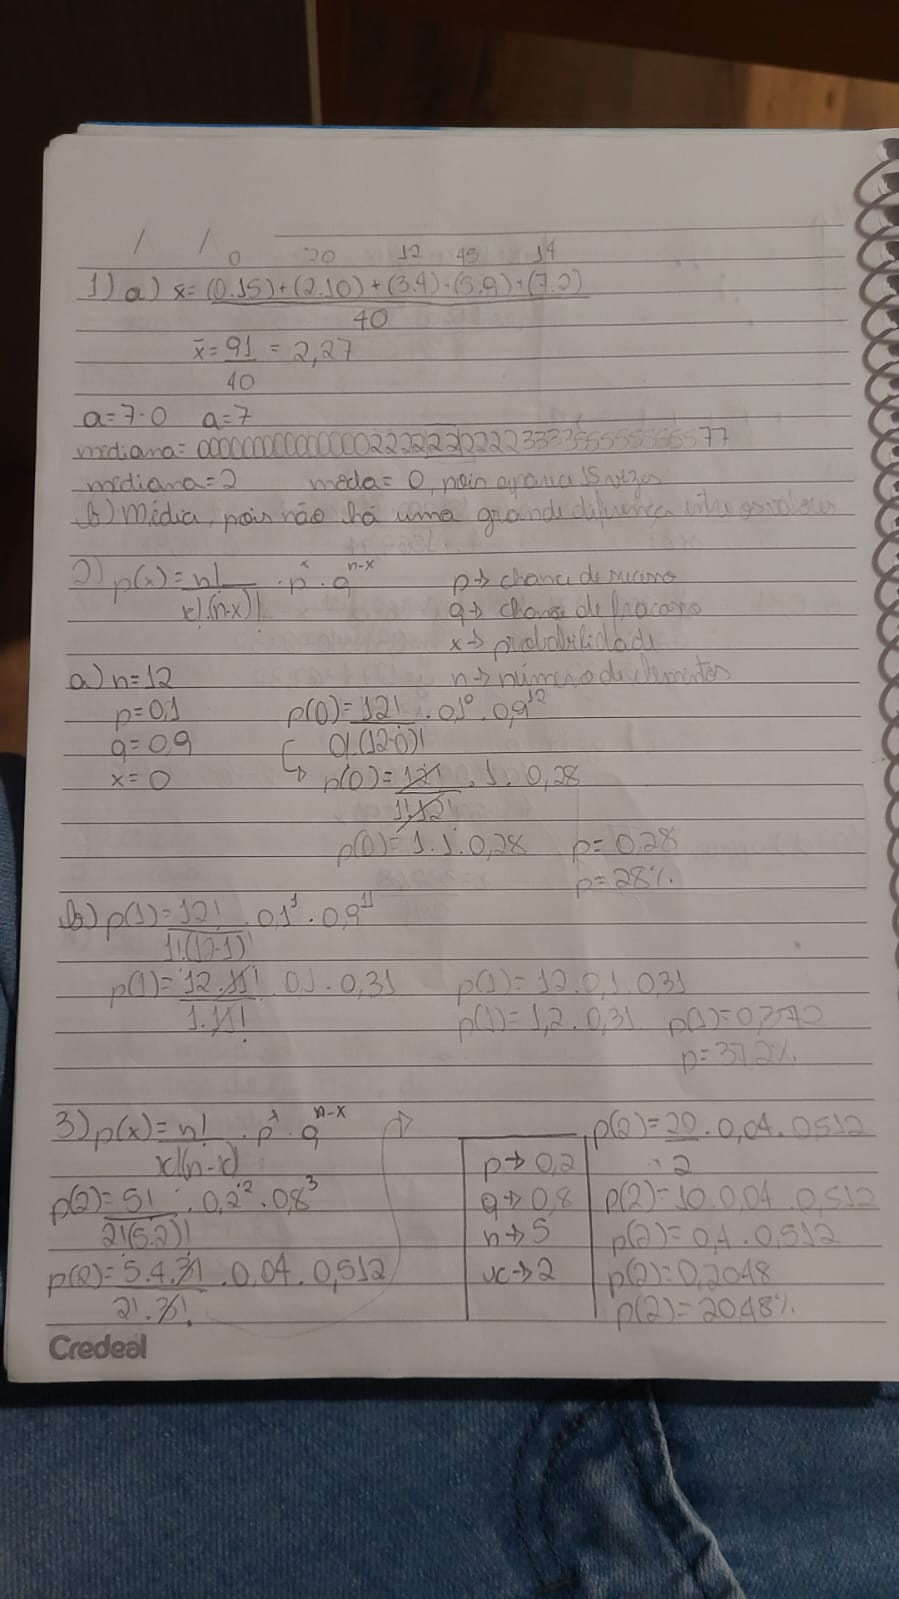 / /
0 20 12 45 14
1) a) x̄= (0.15)+(2.10)+(3.4)+(5.9)+(7.2)
40
x̄= 91 = 2,27
40
a=7-0 a=7
mediana= 0000000000000002222222222333355555555577
mediana=2 moda= 0, pois aparece 15 vezes
b) Média, pois não há uma grande diferença entre os valores
2) p(x)= n! . p^x . q^n-x p→ chance de sucesso
x!.(n-x)! q→ chance de fracasso
x→ probabilidade
a) n=12 n→ número de elementos
p=0,1 p(0)= 12! . 0,1^0 . 0,9^12
q=0,9 0!.(12-0)!
x=0 ↳ p(0)= 12! . 1 . 0,28
1!.12!
p(0)= 1.1.0,28 p=0,28
p=28%.
b) p(1)= 12! . 0,1^1 . 0,9^11
1!(12-1)!
p(1)= 12.11! . 0,1 . 0,31 p(1)=12.0,1.0,31
1.11! p(1)=1,2.0,31 p(1)=0,372
p=37,2%.
3) p(x)= n! . p^x . q^n-x p(2)= 20 . 0,04 . 0,512
x!(n-x)! p→ 0,2 2
p(2)= 5! . 0,2^2 . 0,8^3 q→ 0,8 p(2)=10.0,04.0,512
2!(5-2)! n→ 5 p(2)=0,4.0,512
p(2)= 5.4.3! . 0,04 . 0,512 x→2 p(2)=0,2048
2!.3! p(2)=20,48%.
Credeal